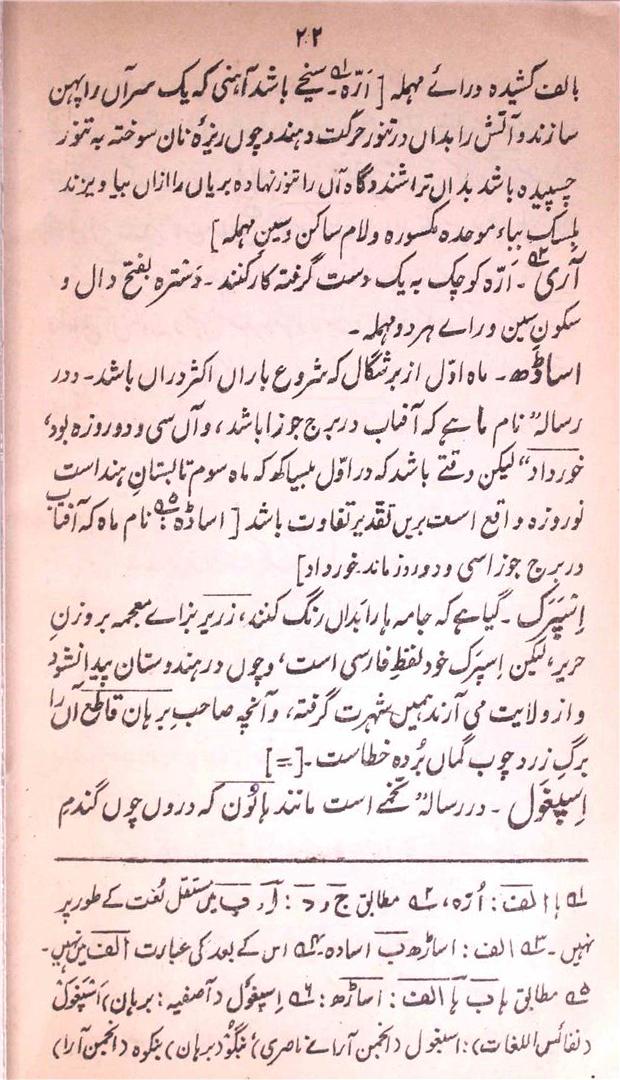 ۲۲
بالف کشیدہ و رائے مہملہ [ اَرّہ۱ ۔ سیخے باشد آہنی کہ یک سر آں را پہن
سازند و آتش را بداں در تنور حرکت دہند و چوں ریزۂ نان سوختہ بہ تنور
چسپیدہ باشد بداں تراشند و گاہ آں را تنور نہادہ بریاں را ازاں بیاویزند
بلسک بباء موحدہ مکسورہ و لام ساکن و سین مہملہ ]
آری۲ ۔ اَرّہ کوچک بہ یک دست گرفتہ کار کنند ۔ دَسْترہ بفتح دال و
سکونِ سین و رائے ہر دو مہملہ ۔
اساڈھ ۔ ماہ اوّل از برشگال کہ شروع باراں اکثر دراں باشد ۔ و در
رسالہ ” نام ماہے کہ آفتاب در برج جوزا باشد ، و آں سی و دو روزہ بود ،
خورداد “ لیکن وقتے باشد کہ در اوّل بیساکھ کہ ماہ سوم تابستانِ ہند است
نوروز واقع است بریں تقدیر تفاوت باشد [ اساڈہ۵ : نام ماہ کہ آفتاب
در برج جوزا سی و دو روز ماند خورداد ]
اِسْپَرَک ۔ گیاہے کہ جامہ ہا را بداں رنگ کنند ، زریر بزاے معجمہ بر وزنِ
حریر ، لیکن اِسپرَک خود لفظِ فارسی است ، و چوں در ہندوستان پیدا نشود
و از ولایت می آرند ہمیں شہرت گرفتہ ، و آنچہ صاحبِ برہان قاطع آں را
برگِ زرد چوب گماں بُردہ خطاست ۔ [ = ]
اِسپغول ۔ در رسالہ ” تخمے است مانند ہاتُون کہ دروں چوں گندم
۱ الف : اُرّہ ، ۲ مطابق ج و د : آ ، ب میں مستقل لغت کے طور پر
نہیں ۔ ۳ الف : اساڑھ ب اسادہ ۔ ۴ اس کے بعد کی عبارت الف میں نہیں ۔
۵ مطابق ہا ب ہا الف : اساڑھ : ۶ اِسپغول و آصفیہ : برہان ) اَسْپَغول
( نفائس اللغات ) : اسبغول ( انجمن آرائے ناصری )